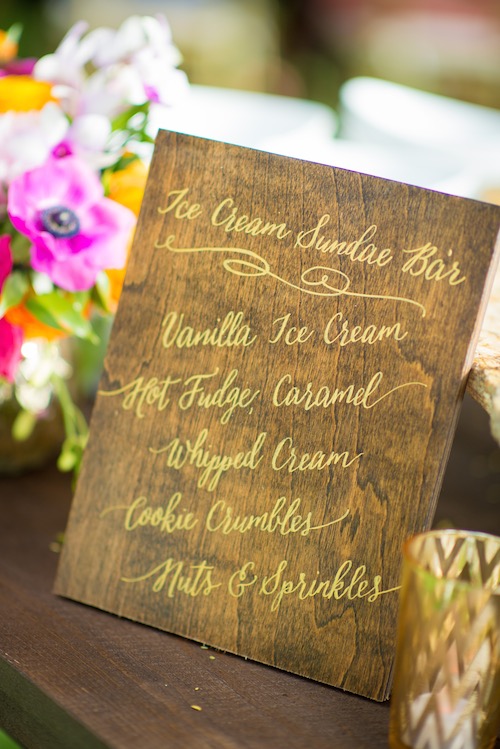 Ice Cream Sundae Bar
Vanilla Ice Cream
Hot Fudge, Caramel
Whipped Cream
Cookie Crumbles
Nuts & Sprinkles